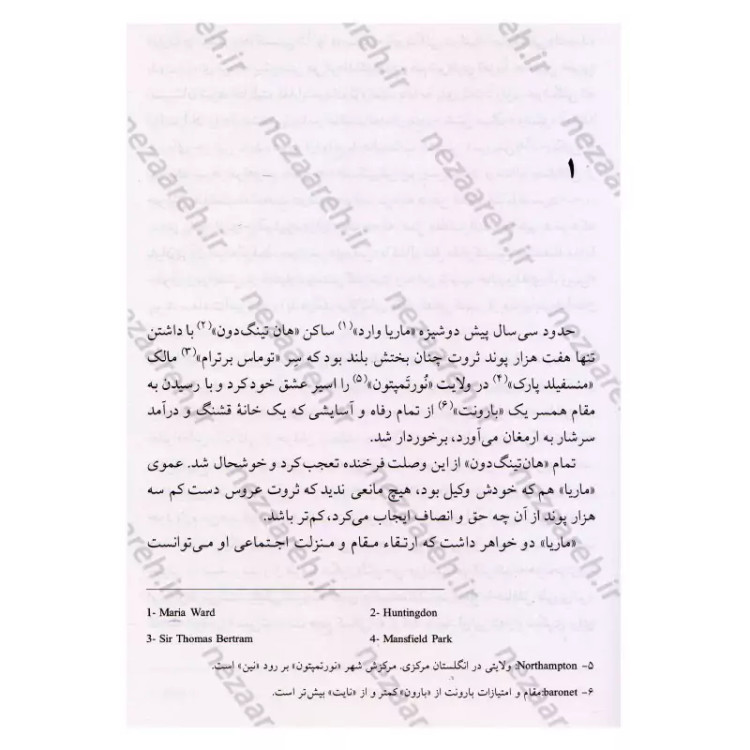 ۱
حدود سی‌سال پیش دوشیزه «ماریا وارد»(۱) ساکن «هان تینگ‌دون»(۲) با داشتن
تنها هفت هزار پوند ثروت چنان بختش بلند بود که سِر «توماس برترام»(۳) مالک
«منسفیلد پارک»(۴) در ولایت «نُورتَمپتون»(۵) را اسیر عشق خود کرد و با رسیدن به
مقام همسر یک «بارونت»(۶) از تمام رفاه و آسایشی که یک خانهٔ قشنگ و درآمد
سرشار به ارمغان می‌آورد، برخوردار شد.
تمام «هان‌تینگ‌دون» از این وصلت فرخنده تعجب کرد و خوشحال شد. عموی
«ماریا» هم که خودش وکیل بود، هیچ مانعی ندید که ثروت عروس دست کم سه
هزار پوند از آن چه حق و انصاف ایجاب می‌کرد، کم‌تر باشد.
«ماریا» دو خواهر داشت که ارتقاء مقام و منزلت اجتماعی او می‌توانست
1- Maria Ward 2- Huntingdon
3- Sir Thomas Bertram 4- Mansfield Park
۵- Northampton: ولایتی در انگلستان مرکزی. مرکزش شهر «نورتمپتون» بر رود «نین» است.
۶- baronet:مقام و امتیازات بارونت از «بارون» کمتر و از «نایت» بیش‌تر است.
nezaareh.ir